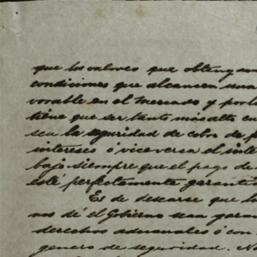 que los valores que obtengan
condiciones que alcancen una
vorable en el mercado y por lo
tiene que ser tanto más alto cu
sea la seguridad de cobro de p
intereses ó viceversa el inte
bajo siempre que el pago de
esté perfectamente garanti
Es de desearse que lo
nos dé el Gobierno sean garan
derechos aduanales ó con
genero de seguridad. No